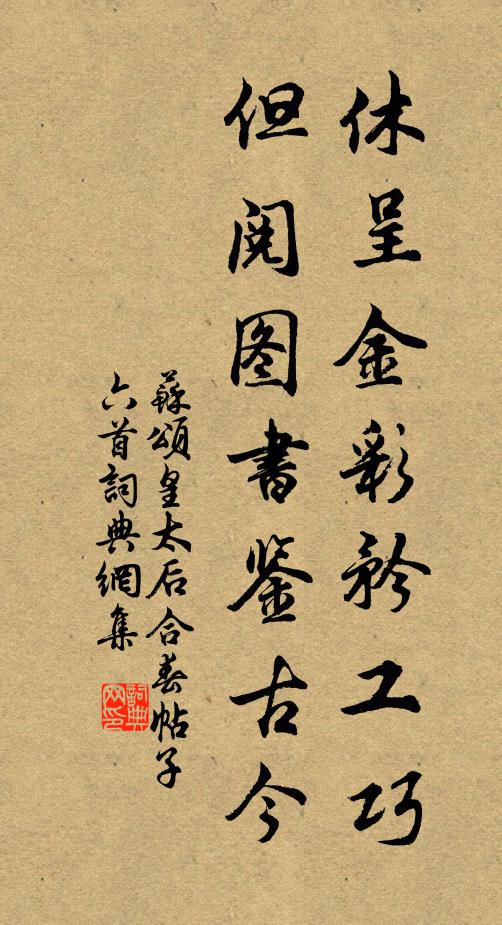 休呈金彩矜工巧
但阅图書鉴古今
蘇頌皇太后合春帖子
六首詞典網集
詞典网印